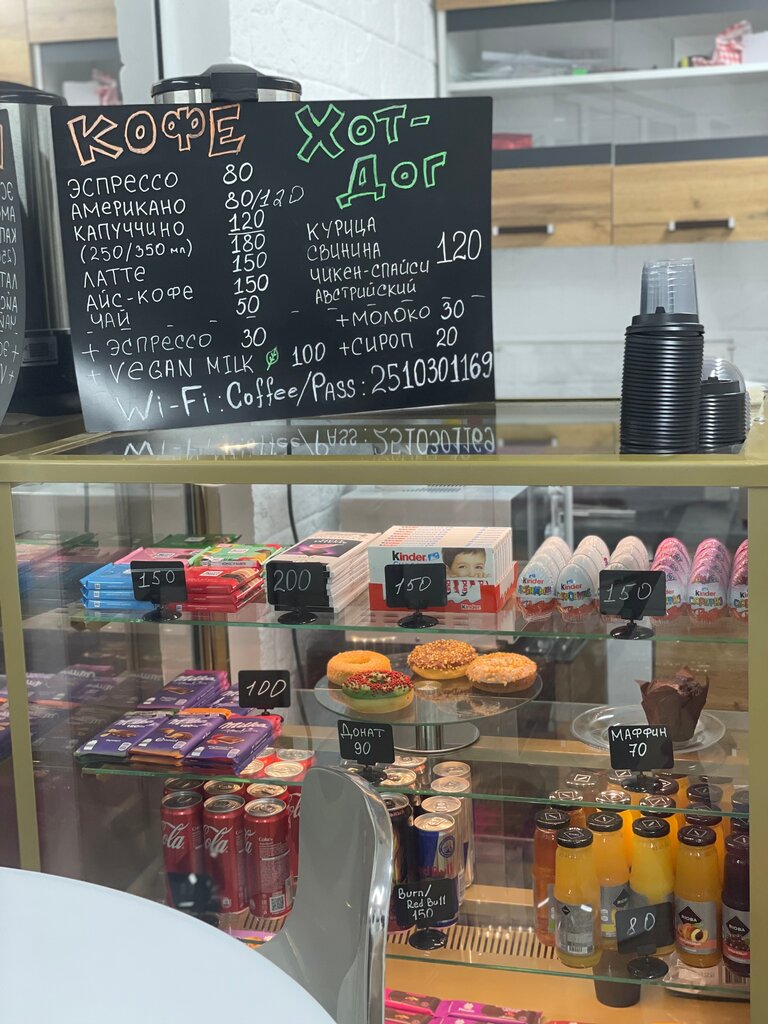 КОФЕ
ЭСПРЕССО 80
АМЕРИКАНО 80/120
КАПУЧЧИНО 120
(250/350 мл) 180
ЛАТТЕ 150
АЙС-КОФЕ 150
ЧАЙ 50
+ ЭСПРЕССО 30
+ VEGAN MILK 100
ХОТ-
ДОГ
КУРИЦА
СВИНИНА
ЧИКЕН-СПАЙСИ
АВСТРИЙСКИЙ
120
+МОЛОКО 30
+СИРОП 20
Wi-Fi: Coffee/Pass: 2510301169
150
200
Kinder
150
Kinder
Kinder
Kinder
150
100
Milka
ДОНАТ
90
МАФФИН
70
Cola
Cola
Burn/
Red Bull
150
80
RIOBA
RIOBA